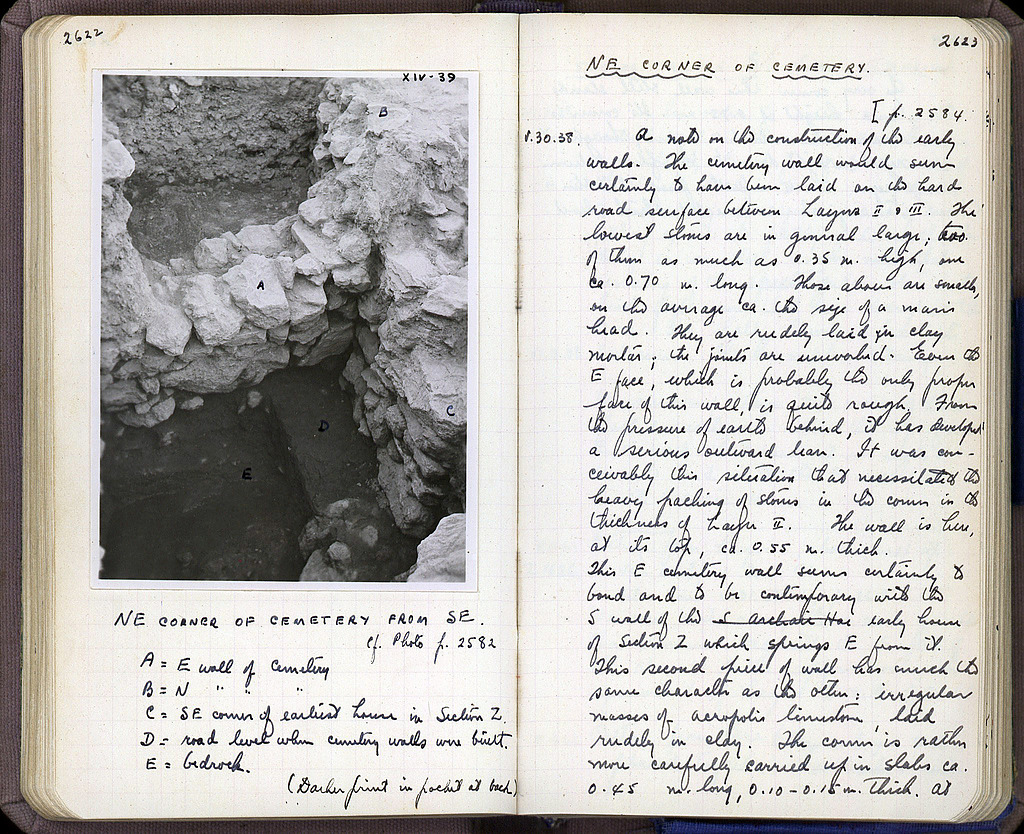 2622
XIV-39
B
A
C
D
E
NE CORNER OF CEMETERY FROM SE.
cf. Photo p. 2582
A = E wall of Cemetery
B = N " " "
C = SE corner of earliest house in Section Z.
D = road level when cemetery walls were built.
E = bedrock.
(Darker print in pocket at back)
2623
NE CORNER OF CEMETERY.
[p. 2584.
V.30.38. A note on the construction of the early
walls. The cemetery wall would seem
certainly to have been laid on the hard
road surface between Layers II & III. The
lowest stones are in general large, two
of them as much as 0.35 m. high, one
ca. 0.70 m. long. Those above are smaller,
on the average ca. the size of a man's
head. They are rudely laid in clay
mortar; the joints are unworked. Even the
E face, which is probably the only proper
face of this wall, is quite rough. From
the pressure of earth behind, it has developed
a serious outward lean. It was con-
ceivably this situation that necessitated the
heavy packing of stones in the corner in the
thickness of Layer II. The wall is here,
at its top, ca. 0.55 m. thick.
This E cemetery wall seems certainly to
bond and to be contemporary with the
S wall of the S Archaic Hou early house
of Section Z which springs E from it.
This second piece of wall has much the
same character as the other: irregular
masses of acropolis limestone, laid
rudely in clay. The corner is rather
more carefully carried up in slabs ca.
0.45 m. long, 0.10-0.15 m. thick. At